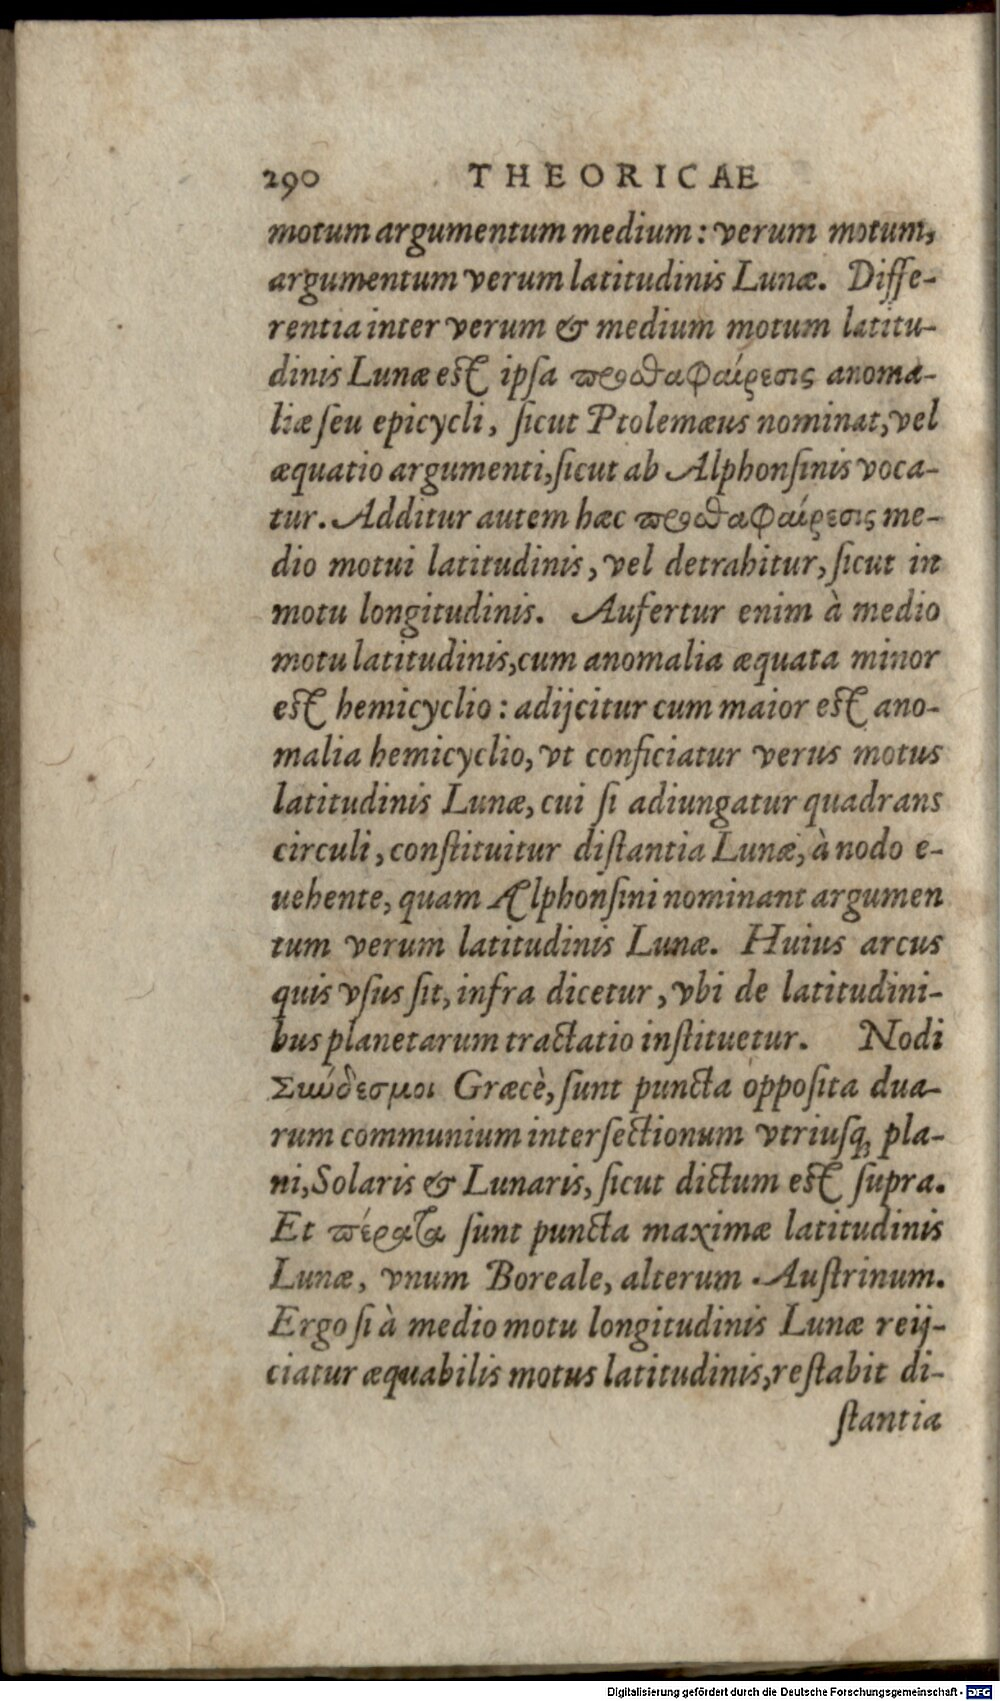 290 THEORICAE
motum argumentum medium: verum motum,
argumentum verum latitudinis Lunæ. Diffe-
rentia inter verum & medium motum latitu-
dinis Lunæ est ipsa προσθαφαίρεσις anoma-
liæ seu epicycli, sicut Ptolemæus nominat, vel
æquatio argumenti, sicut ab Alphonsinis voca-
tur. Additur autem hæc προσθαφαίρεσις me-
dio motui latitudinis, vel detrahitur, sicut in
motu longitudinis. Aufertur enim à medio
motu latitudinis, cum anomalia æquata minor
est hemicyclio: adijcitur cum maior est ano-
malia hemicyclio, vt conficiatur verus motus
latitudinis Lunæ, cui si adiungatur quadrans
circuli, constituitur distantia Lunæ, à nodo e-
uehente, quam Alphonsini nominant argumen
tum verum latitudinis Lunæ. Huius arcus
quis vsus sit, infra dicetur, vbi de latitudini-
bus planetarum tractatio instituetur. Nodi
Σωύδεσμοι Græcè, sunt puncta opposita dua-
rum communium intersectionum vtriusq; pla-
ni, Solaris & Lunaris, sicut dictum est supra.
Et πέρατα sunt puncta maximæ latitudinis
Lunæ, vnum Boreale, alterum Austrinum.
Ergo si à medio motu longitudinis Lunæ reij-
ciatur æquabilis motus latitudinis, restabit di-
stantia
Digitalisierung gefördert durch die Deutsche Forschungsgemeinschaft - DFG